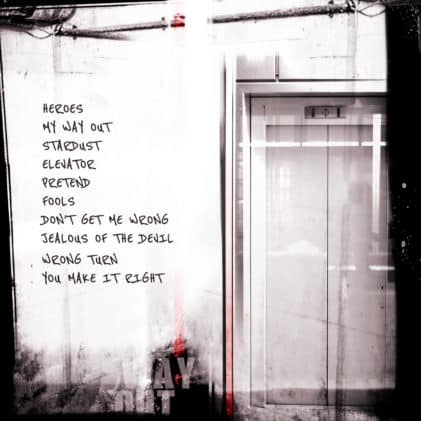 HEROES
MY WAY OUT
STARDUST
ELEVATOR
PRETEND
FOOLS
DON'T GET ME WRONG
JEALOUS OF THE DEVIL
WRONG TURN
YOU MAKE IT RIGHT
WAY
OUT